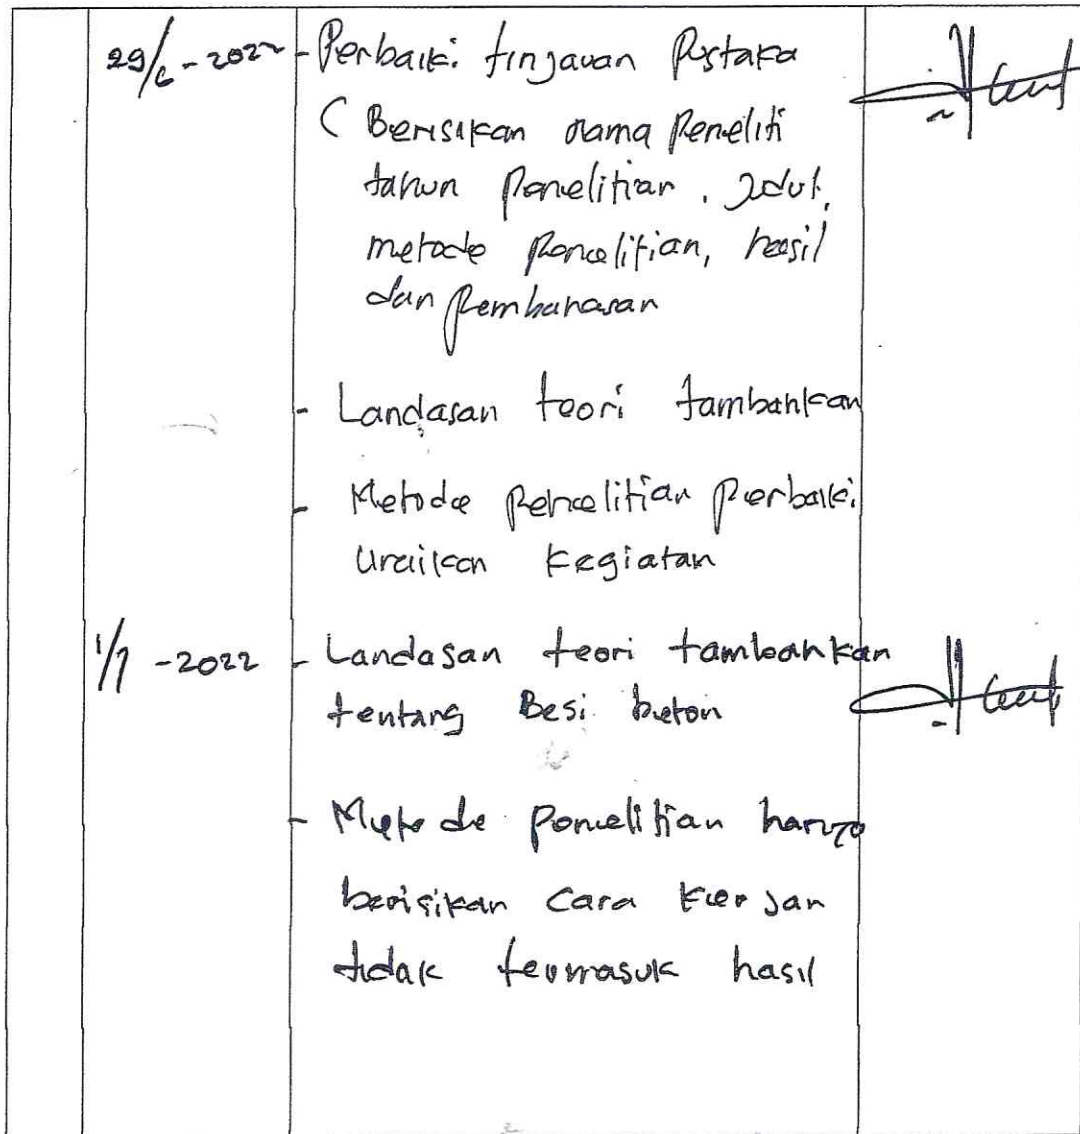 29/6-2022 - Perbaiki tinjauan Pustaka
( Berisikan nama Peneliti
tahun Penelitian, Judul,
metode Penelitian, hasil
dan Pembahasan
- Landasan teori tambahkan
- Metode Penelitian Perbaiki
Uraikan Kegiatan
1/7 -2022 - Landasan teori tambahkan
tentang Besi beton
- Metode Penelitian hanya
berisikan Cara Kerjan
tidak termasuk hasil